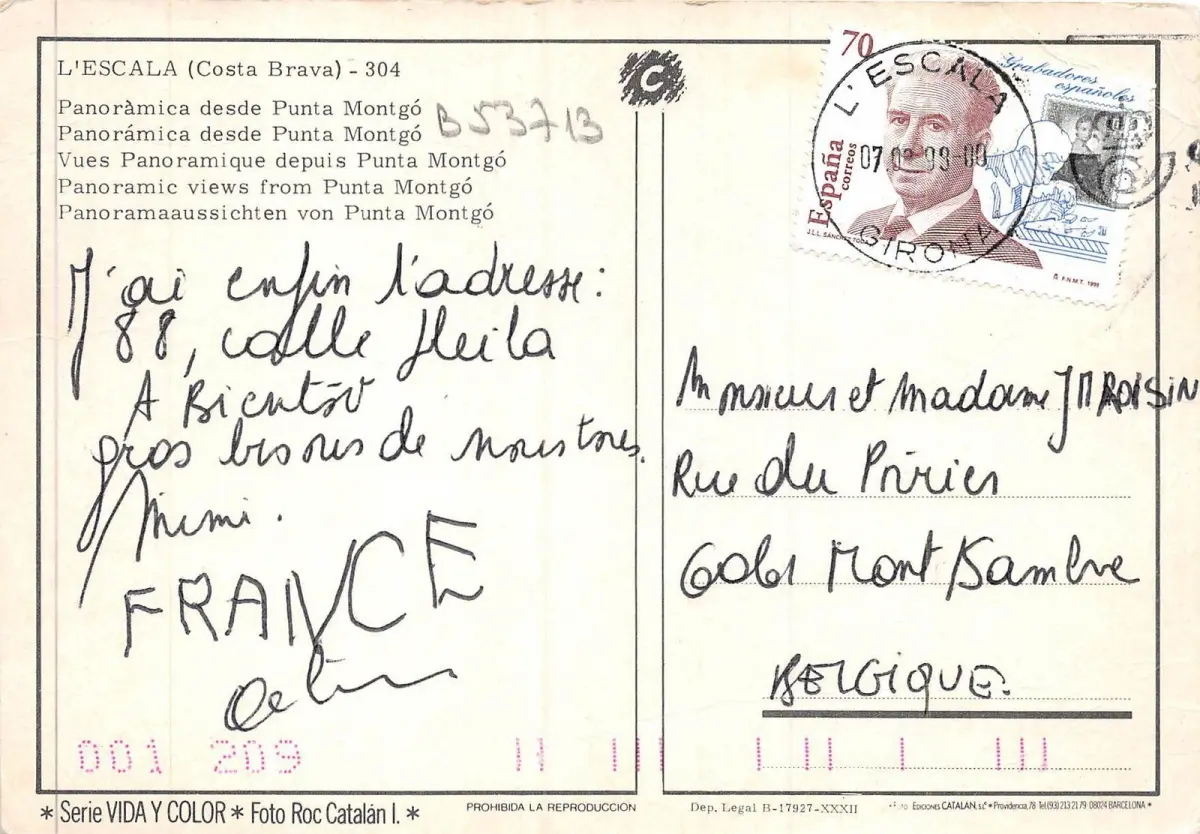 L'ESCALA (Costa Brava) - 304
Panoràmica desde Punta Montgó
Panorámica desde Punta Montgó
Vues Panoramique depuis Punta Montgó
Panoramic views from Punta Montgó
Panoramaaussichten von Punta Montgó
B53713
C
J'ai enfin l'adresse:
88, calle
A Bientôt
gros bisous de nous tous.
Mimi.
FRANCE
001 209
70
Grabadores
españoles
España
correos
J.L. SANCHEZ TODA
F.N.M.T. 1991
L'ESCALA
GIRONA
Monsieur et Madame
Rue du Poirier
6061 Mont/Sambre
BELGIQUE.
* Serie VIDA Y COLOR * Foto Roc Catalán I. *
PROHIBIDA LA REPRODUCCION
Dep. Legal B-17927-XXXII
EDICIONES CATALAN, s.l. * Providencia, 78 Tel. (93) 213 21 79 08024 BARCELONA *